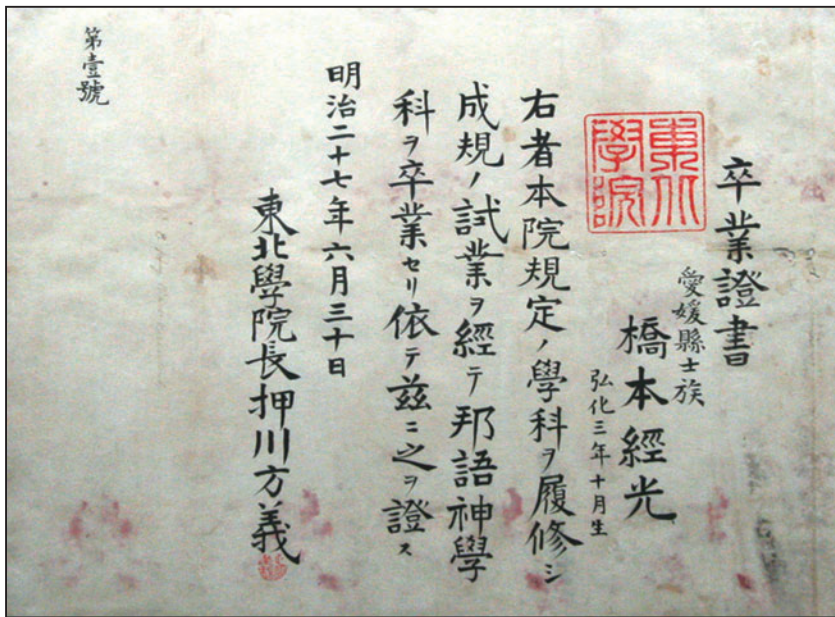 卒業證書
東北學院
愛媛縣士族
橋本經光
弘化三年十月生
右者本院規定ノ學科ヲ履修シ
成規ノ試業ヲ經テ邦語神學
科ヲ卒業セリ依テ茲ニ之ヲ證ス
明治二十七年六月三十日
東北學院長押川方義
第壹號